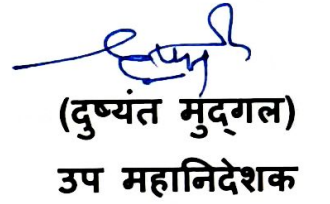 (दुष्यंत मुद्गल)
उप महानिदेशक